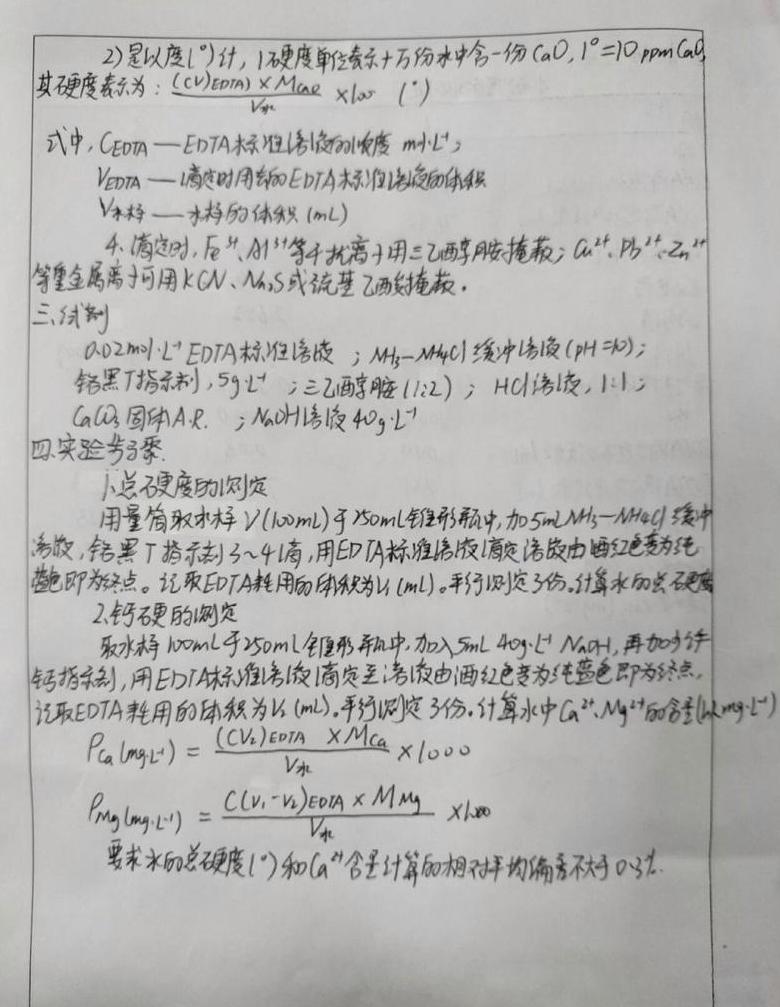 2)是以度(°)计，1硬度单位表示十万份水中含一份CaO，1°=10ppmCaO，
其硬度表示为：(CV)EDTA)×MCaO / V水 ×100 (°)
式中，CEDTA — EDTA标准溶液的浓度 mol·L⁻¹；
VEDTA — 滴定时用去的EDTA标准溶液的体积
V水样 — 水样的体积(mL)
4. 滴定时，Fe³⁺、Al³⁺等干扰离子用三乙醇胺掩蔽；Cu²⁺、Pb²⁺、Zn²⁺
等重金属离子可用KCN、Na₂S或巯基乙酸掩蔽。
三、试剂
0.02mol·L⁻¹ EDTA标准溶液；NH₃-NH₄Cl缓冲溶液(pH=10)；
铬黑T指示剂，5g·L⁻¹；三乙醇胺(1:2)；HCl溶液，1:1；
CaCO₃固体A.R.；NaOH溶液40g·L⁻¹
四.实验步骤.
1.总硬度的测定
用量筒取水样V(100mL)于250mL锥形瓶中，加5mLNH₃-NH₄Cl缓冲
溶液，铬黑T指示剂3~4滴，用EDTA标准溶液滴定溶液由酒红色变为纯
蓝色即为终点。记取EDTA耗用的体积为V₁(mL)。平行测定3份。计算水的总硬度
2.钙硬的测定
取水样100mL于250mL锥形瓶中，加入5mL 40g·L⁻¹ NaOH，再加少许
钙指示剂，用EDTA标准溶液滴定至溶液由酒红色变为纯蓝色即为终点，
记取EDTA耗用的体积为V₂(mL)。平行测定3份。计算水中Ca²⁺、Mg²⁺的含量(以mg·L⁻¹)
ρCa(mg·L⁻¹) = (CV₂)EDTA ×MCa / V水 ×1000
ρMg(mg·L⁻¹) = C(V₁-V₂)EDTA×MMg / V水 ×1000
要求水的总硬度(°)和Ca²⁺含量计算的相对平均偏差不大于0.3%.